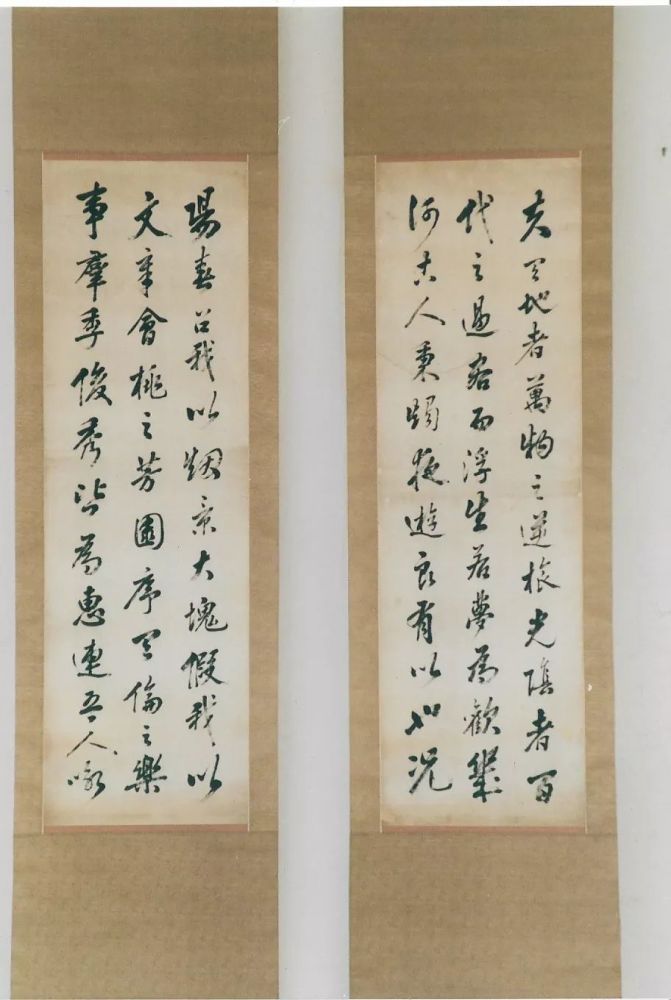 夫天地者萬物之逆旅光陰者百
代之過客而浮生若夢為歡幾
何古人秉燭夜遊良有以也況
陽春召我以烟景大塊假我以
文章會桃之芳園序天倫之樂
事羣季俊秀皆為惠連吾人咏